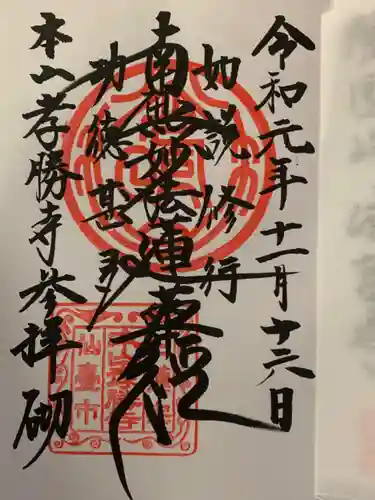 令和元年十一月十六日
如説修行
南無妙法蓮華経
功徳甚多
本山孝勝寺参拝砌
仙臺市